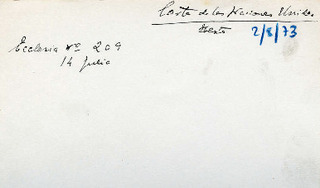 Carta de las Naciones Unidas
Texto
2/8/73
Ecclesia nº 209
14 Julio